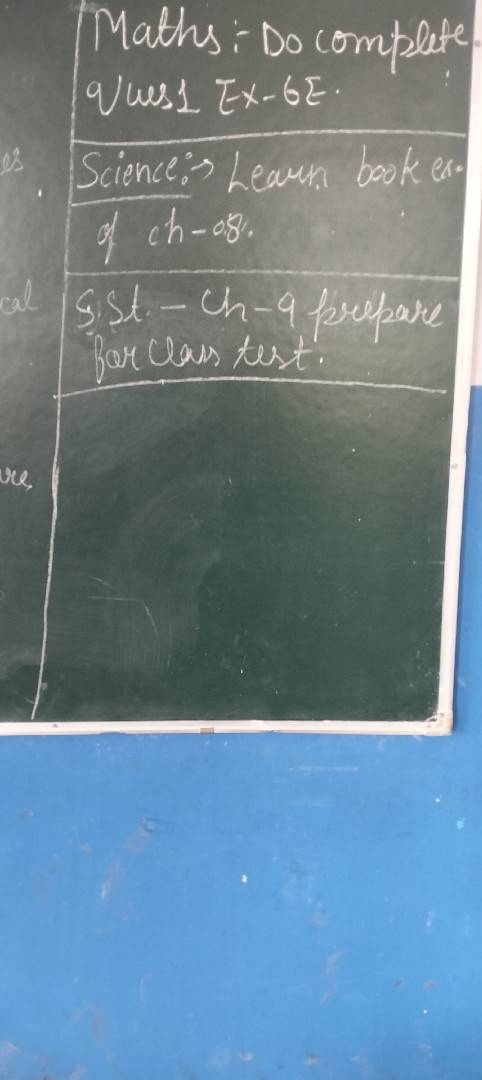 Maths :- Do complete
Ques 1 Ex-6E.
Science :-> Learn book ex.
of ch-08.
S.St. - Ch-9 prepare
for class test.